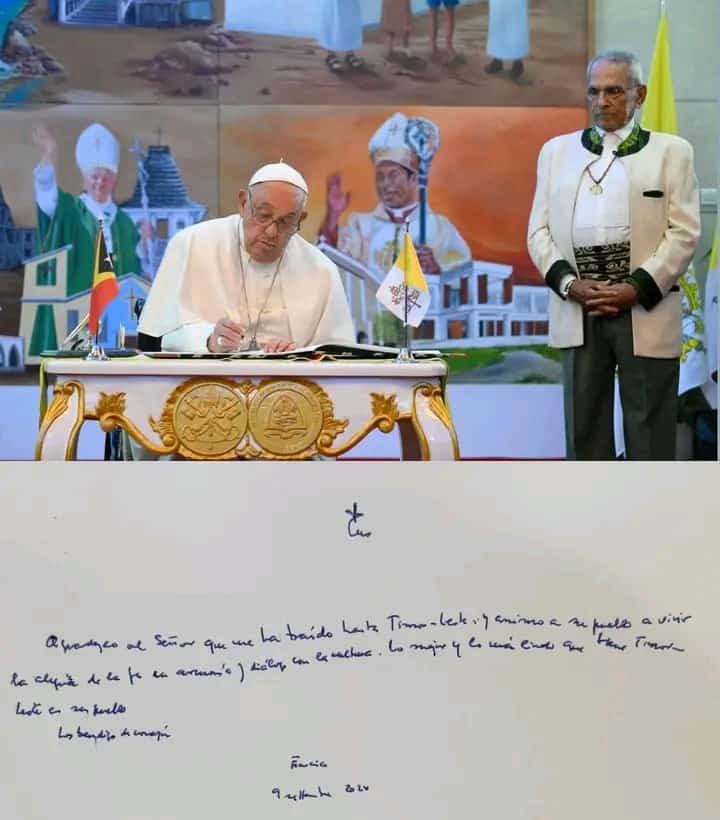 Agradezco al Señor que me ha traído hasta Timor-Leste, y animo a su pueblo a vivir
la alegría de la fe en armonía y diálogo con la cultura. Lo mejor y lo más lindo que tiene Timor-
Leste es su pueblo
Los bendigo de corazón
Francisco
9 settembre 2024